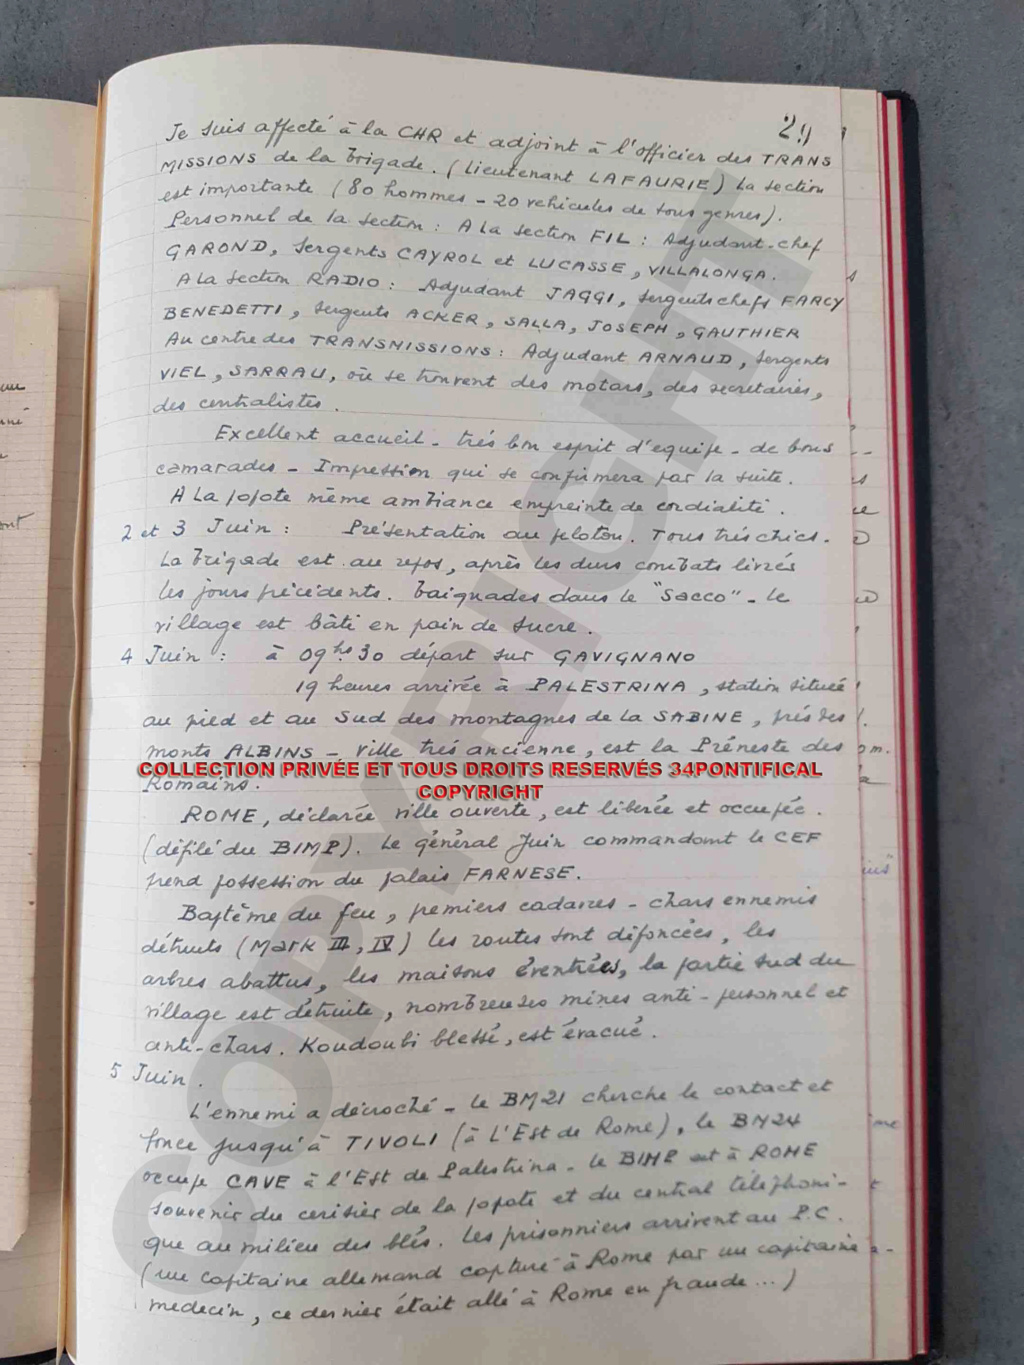 29
Je suis affecté à la CHR et adjoint à l'officier des TRANS
MISSIONS de la brigade. (Lieutenant LAFAURIE) La section
est importante (80 hommes - 20 vehicules de tous genres).
Personnel de la section : A la section FIL : Adjudant-chef
GAROND, Sergents CAYROL et LUCASSE, VILLALONGA.
A la section RADIO : Adjudant JAGGI, Sergents chefs FARCY
BENEDETTI, Sergents ACKER, SALLA, JOSEPH, GAUTHIER
Au centre des TRANSMISSIONS : Adjudant ARNAUD, Sergents
VIEL, SARRAU, où se trouvent des motars, des secretaires,
des centralistes.
Excellent accueil - très bon esprit d'equipe - de bons
camarades - Impression qui se confirmera par la suite.
A la popote même ambiance empreinte de cordialité.
2 et 3 Juin : Présentation au peloton. Tous très chics.
La brigade est au repos, après les durs combats livrés
les jours précédents. Baignades dans le "Sacco" - le
village est bâti en pain de sucre.
4 Juin : à 09 hs 30 départ sur GAVIGNANO
19 heures arrivée à PALESTRINA, station située
au pied et au Sud des montagnes de la SABINE, près des
monts ALBINS - Ville très ancienne, est la Préneste des
Romains.
COLLECTION PRIVÉE ET TOUS DROITS RESERVÉS 34PONTIFICAL
COPYRIGHT
ROME, déclarée ville ouverte, est liberée et occupée.
(défilé du BIMP). Le général Juin commandant le CEF
prend possession du palais FARNESE.
Baptême du feu, premiers cadavres - chars ennemis
détruits (Mark III, IV) les routes sont défoncées, les
arbres abattus, les maisons éventrées, la partie sud du
village est détruite, nombreuses mines anti-personnel et
anti-chars. Koudoubi blessé, est évacué.
5 Juin.
L'ennemi a décroché - le BM21 cherche le contact et
fonce jusqu'à TIVOLI (à l'Est de Rome), le BM24
occupe CAVE à l'Est de Palestrina - le BIMP est à ROME
Souvenir du cerisier de la popote et du central téléphoni-
que au milieu des blés. Les prisonniers arrivent au P.C.
(un capitaine allemand capturé à Rome par un capitaine
medecin, ce dernier était allé à Rome en fraude...)
COPYRIGHT